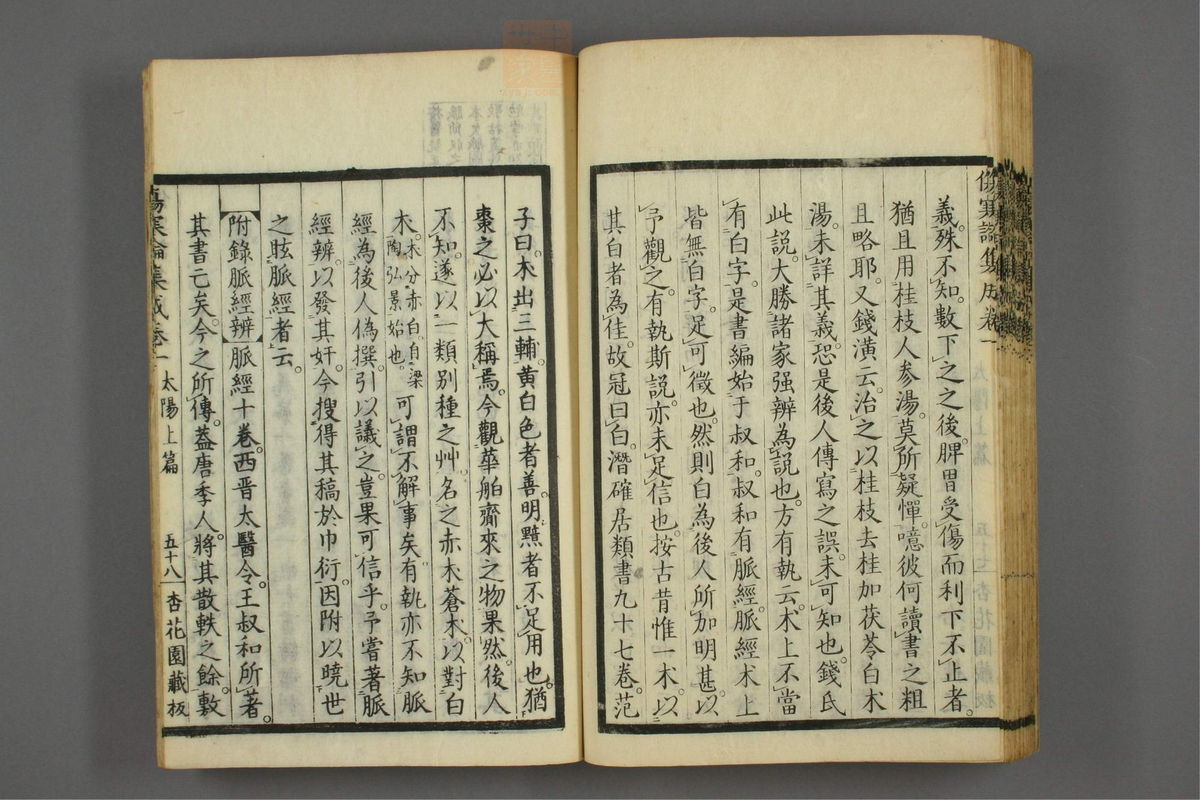 傷寒論集成卷一
義。殊不知。數下之之後。脾胃受傷。而利下不止者。
猶且用桂枝人參湯。莫所疑憚。噫彼何讀書之粗
且略耶。又錢潢云。治之以桂枝去桂加茯苓白朮
湯。未詳其義。恐是後人傳寫之誤。未可知也。錢氏
此說。大勝諸家强辨為說也。方有執云。朮上不當
有白字。是書編始于叔和。叔和有脈經。脈經朮上
皆無白字。足可徵也。然則白為後人所加明甚。以
予觀之。有執斯說。亦未足信也。按古昔惟一朮。以
其白者為佳。故冠曰白。潛確居類書九十七卷。范
子曰。朮出三輔。黃白色者善。明黰者不足用也。猶
棗之必以大稱焉。今觀華舶齎來之物果然。後人
不知。遂以一類別種之艸。名之赤朮蒼朮。以對白
朮。朮分赤白。自梁陶弘景始也。可謂不解事矣。有執亦不知脈
經為後人偽撰。引以議之。豈果可信乎。予嘗著脈
經辨。以發其奸。今搜得其稿於巾衍。因附以曉世
之眩脈經者云。
附錄脈經辨 脈經十卷。西晋太醫令。王叔和所著。
其書亡矣。今之所傳。蓋唐季人。將其散軼之餘。敷
傷寒論集成卷一 太陽上篇 五十八 杏花園藏板